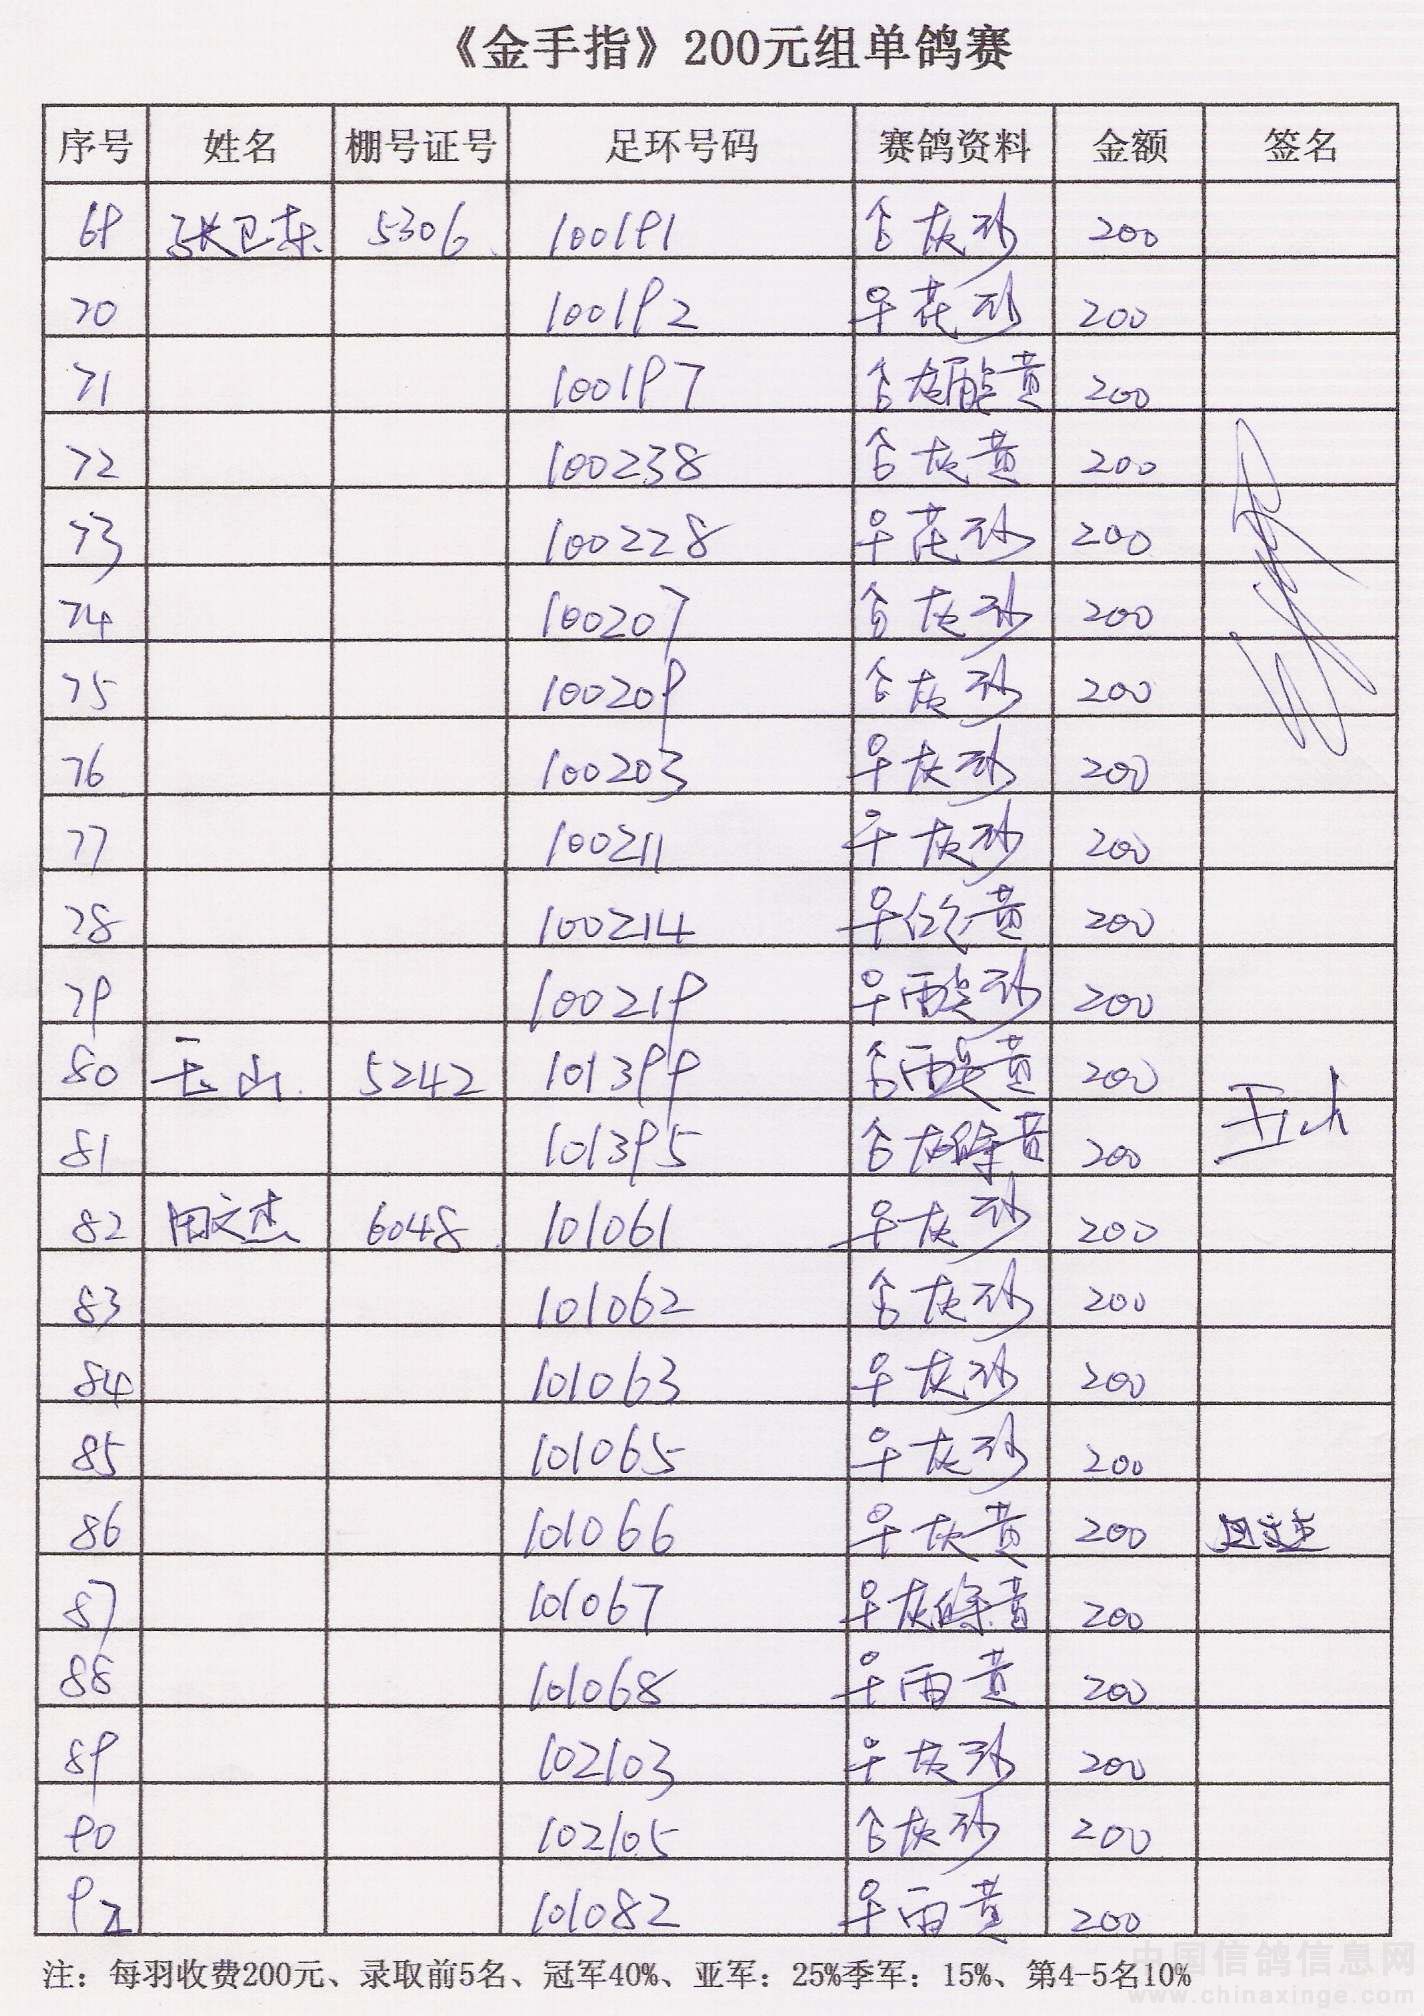 《金手指》200元组单鸽赛
序号 姓名 棚号证号 足环号码 赛鸽资料 金额 签名
69 张卫东 5306 100191 合灰砂 200
70 100192 早花砂 200
71 100197 合灰 黄 200
72 100238 合灰黄 200
73 100228 早花砂 200
74 100207 合灰砂 200
75 100209 合灰砂 200
76 100203 早灰砂 200
77 100211 早灰砂 200
78 100214 早红黄 200
79 100219 早雨 砂 200
80 王山 5242 101399 合雨 黄 200
81 101395 合灰條黄 200
82 田文杰 6048 101061 早灰砂 200
83 101062 合灰砂 200
84 101063 早灰砂 200
85 101065 早灰砂 200
86 101066 早灰黄 200 田文杰
87 101067 早灰條黄 200
88 101068 早雨黄 200
89 102103 早灰砂 200
90 102105 合灰砂 200
91 101082 早雨黄 200
注：每羽收费200元、录取前5名、冠军40%、亚军：25%季军：15%、第4-5名10%
中国信鸽信息网
www.chinaxinge.com